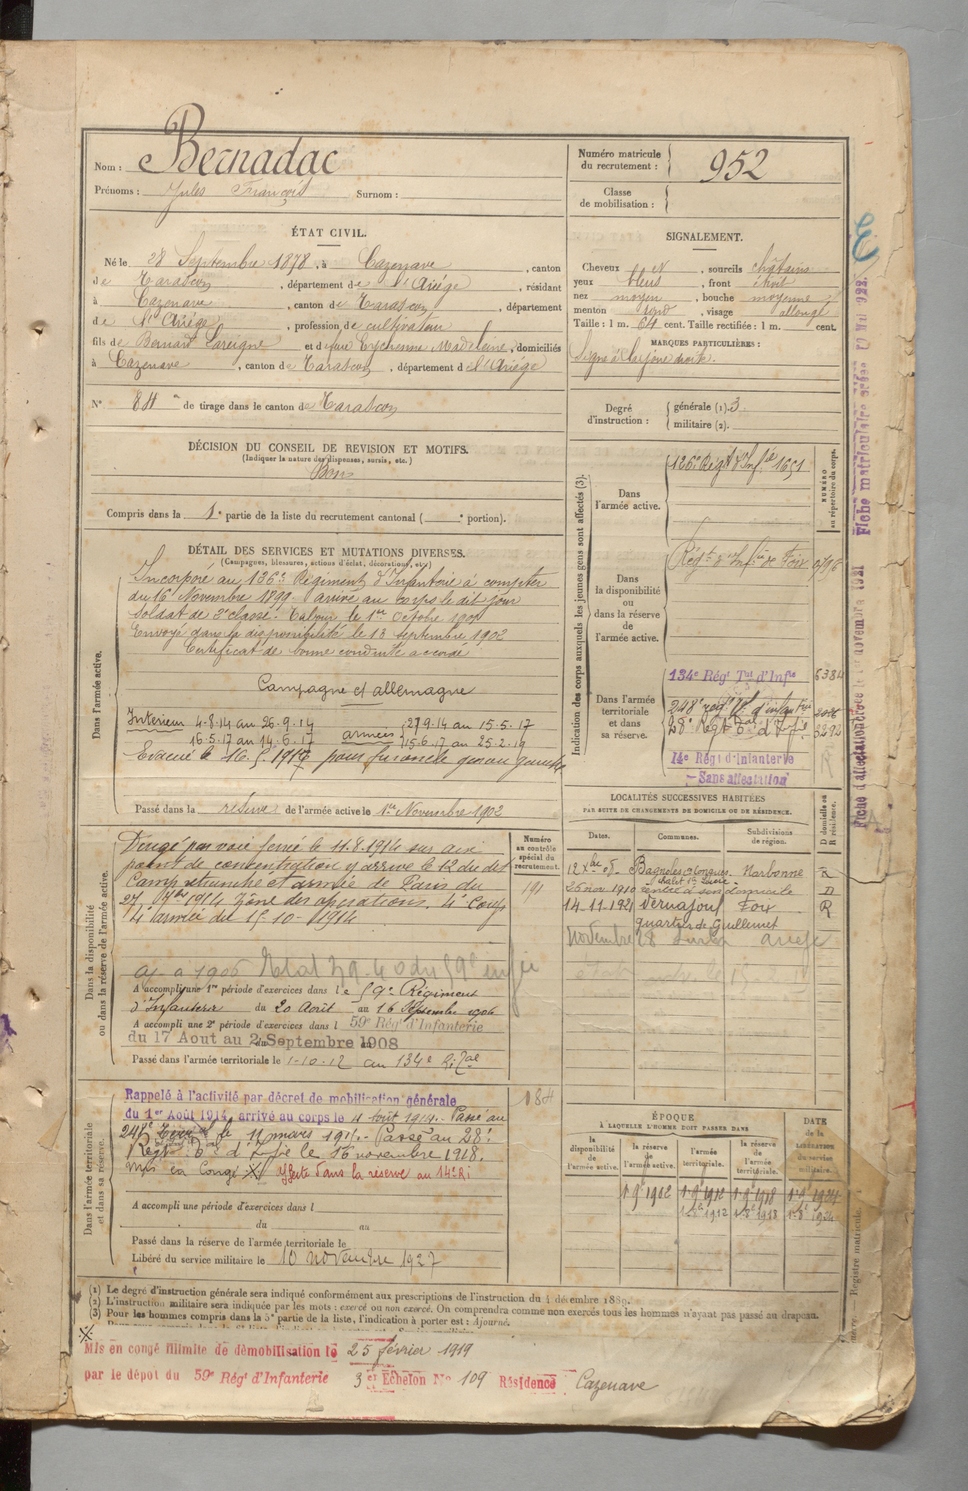 Nom : Bernadac
Prénoms : Jules François Surnom :
Numéro matricule du recrutement : 952
Classe de mobilisation :
ÉTAT CIVIL.
Né le 28 Septembre 1878, à Cazenave, canton
de Tarascon, département de l'Ariège, résidant
à Cazenave, canton de Tarascon, département
de l'Ariège, profession de cultivateur
fils de Bernard Lareigne et de feue Eychenne Madeleine, domiciliés
à Cazenave, canton de Tarascon, département de l'Ariège
N° 84 de tirage dans le canton de Tarascon
SIGNALEMENT.
Cheveux N, sourcils châtains
yeux bleus, front étroit
nez moyen, bouche moyenne
menton rond, visage allongé
Taille : 1 m. 64 cent. Taille rectifiée : 1 m. cent.
MARQUES PARTICULIÈRES :
Signe à la joue droite.
Degré d'instruction : générale (1). 3.
militaire (2).
DÉCISION DU CONSEIL DE REVISION ET MOTIFS.
(Indiquer la nature des dispenses, sursis, etc.)
Bon
Compris dans la 1e partie de la liste du recrutement cantonal ( e portion).
DÉTAIL DES SERVICES ET MUTATIONS DIVERSES.
(Campagnes, blessures, actions d'éclat, décorations, etc.)
Dans l'armée active.
Incorporé au 126e Régiment d'Infanterie à compter
du 16 Novembre 1899. Arrivé au corps le dit jour
Soldat de 2e classe.
Envoyé dans la disponibilité le 13 Septembre 1902
Certificat de bonne conduite accordé
Campagne et allemagne
Intérieur 4-8-14 au 26-9-14
16-5-17 au 14-6-17
armées 27-9-14 au 15-5-17
15-6-17 au 25-2-19
Passé dans la réserve de l'armée active le 1er Novembre 1902
Indication des corps auxquels les jeunes gens sont affectés (3).
NUMÉRO au répertoire du corps.
Dans l'armée active.
126e Régt d'Infie 1651
Dans la disponibilité ou dans la réserve de l'armée active.
Régt d'Infie de Foix
Dans l'armée territoriale et dans sa réserve.
134e Régt Tal d'Infie 6384
248e régt Tal d'infantrie
28e Régt Tal d'Infie 3292
14e Régt d'Infanterie
- Sans affectation
Dans la disponibilité ou dans la réserve de l'armée active.
Numéro au contrôle spécial du recrutement.
191
Dirigé par voie ferrée le 11.8.1914 sur son
point de concentration y arrive le 12 du dit
Camp retranché et armée de Paris du
27 1914 Zone des opérations. 4e Corps
4e armée du 15-10-1914
A accompli une 1re période d'exercices dans le 59e Régiment
d'Infanterie du 20 Août au 16 Septembre 1906
A accompli une 2e période d'exercices dans l 59e Régt d'Infanterie
du 17 Aout au 2 Septembre 1908
Passé dans l'armée territoriale le 1-10-12 au 134e R.Tal
LOCALITÉS SUCCESSIVES HABITÉES
PAR SUITE DE CHANGEMENTS DE DOMICILE OU DE RÉSIDENCE.
Dates. Communes. Subdivisions de région. D domicile ou R résidence.
Narbonne R
25 mai 1910 rentré à son domicile D
14-11-1921 Vernajoul Foix R
quartier de Guilleumet
Novembre 28
Dans l'armée territoriale et dans sa réserve.
Rappelé à l'activité par décret de mobilisation générale
du 1er Août 1914, arrivé au corps le 4 août 1914. Passé au
248e Territ le 11 mars 1915. Passé au 28e
Régt Tal d'Infie le 16 novembre 1918.
Mis en Congé X Affecté dans la réserve au 14e RI
A accompli une période d'exercices dans l
du au
Passé dans la réserve de l'armée territoriale le
Libéré du service militaire le 10 novembre 1927
ÉPOQUE
À LAQUELLE L'HOMME DOIT PASSER DANS
la disponibilité de l'armée active.
la réserve de l'armée active.
l'armée territoriale.
la réserve de l'armée territoriale.
DATE de la LIBÉRATION du service militaire.
(1) Le degré d'instruction générale sera indiqué conformément aux prescriptions de l'instruction du 4 décembre 1889.
(2) L'instruction militaire sera indiquée par les mots : exercé ou non exercé. On comprendra comme non exercés tous les hommes n'ayant pas passé au drapeau.
(3) Pour les hommes compris dans la 5e partie de la liste, l'indication à porter est : Ajourné.
Mis en congé illimité de démobilisation le 25 février 1919
par le dépôt du 59e Régt d'Infanterie 3 et Echelon No 109 Résidence Cazenave
Registre matricule.